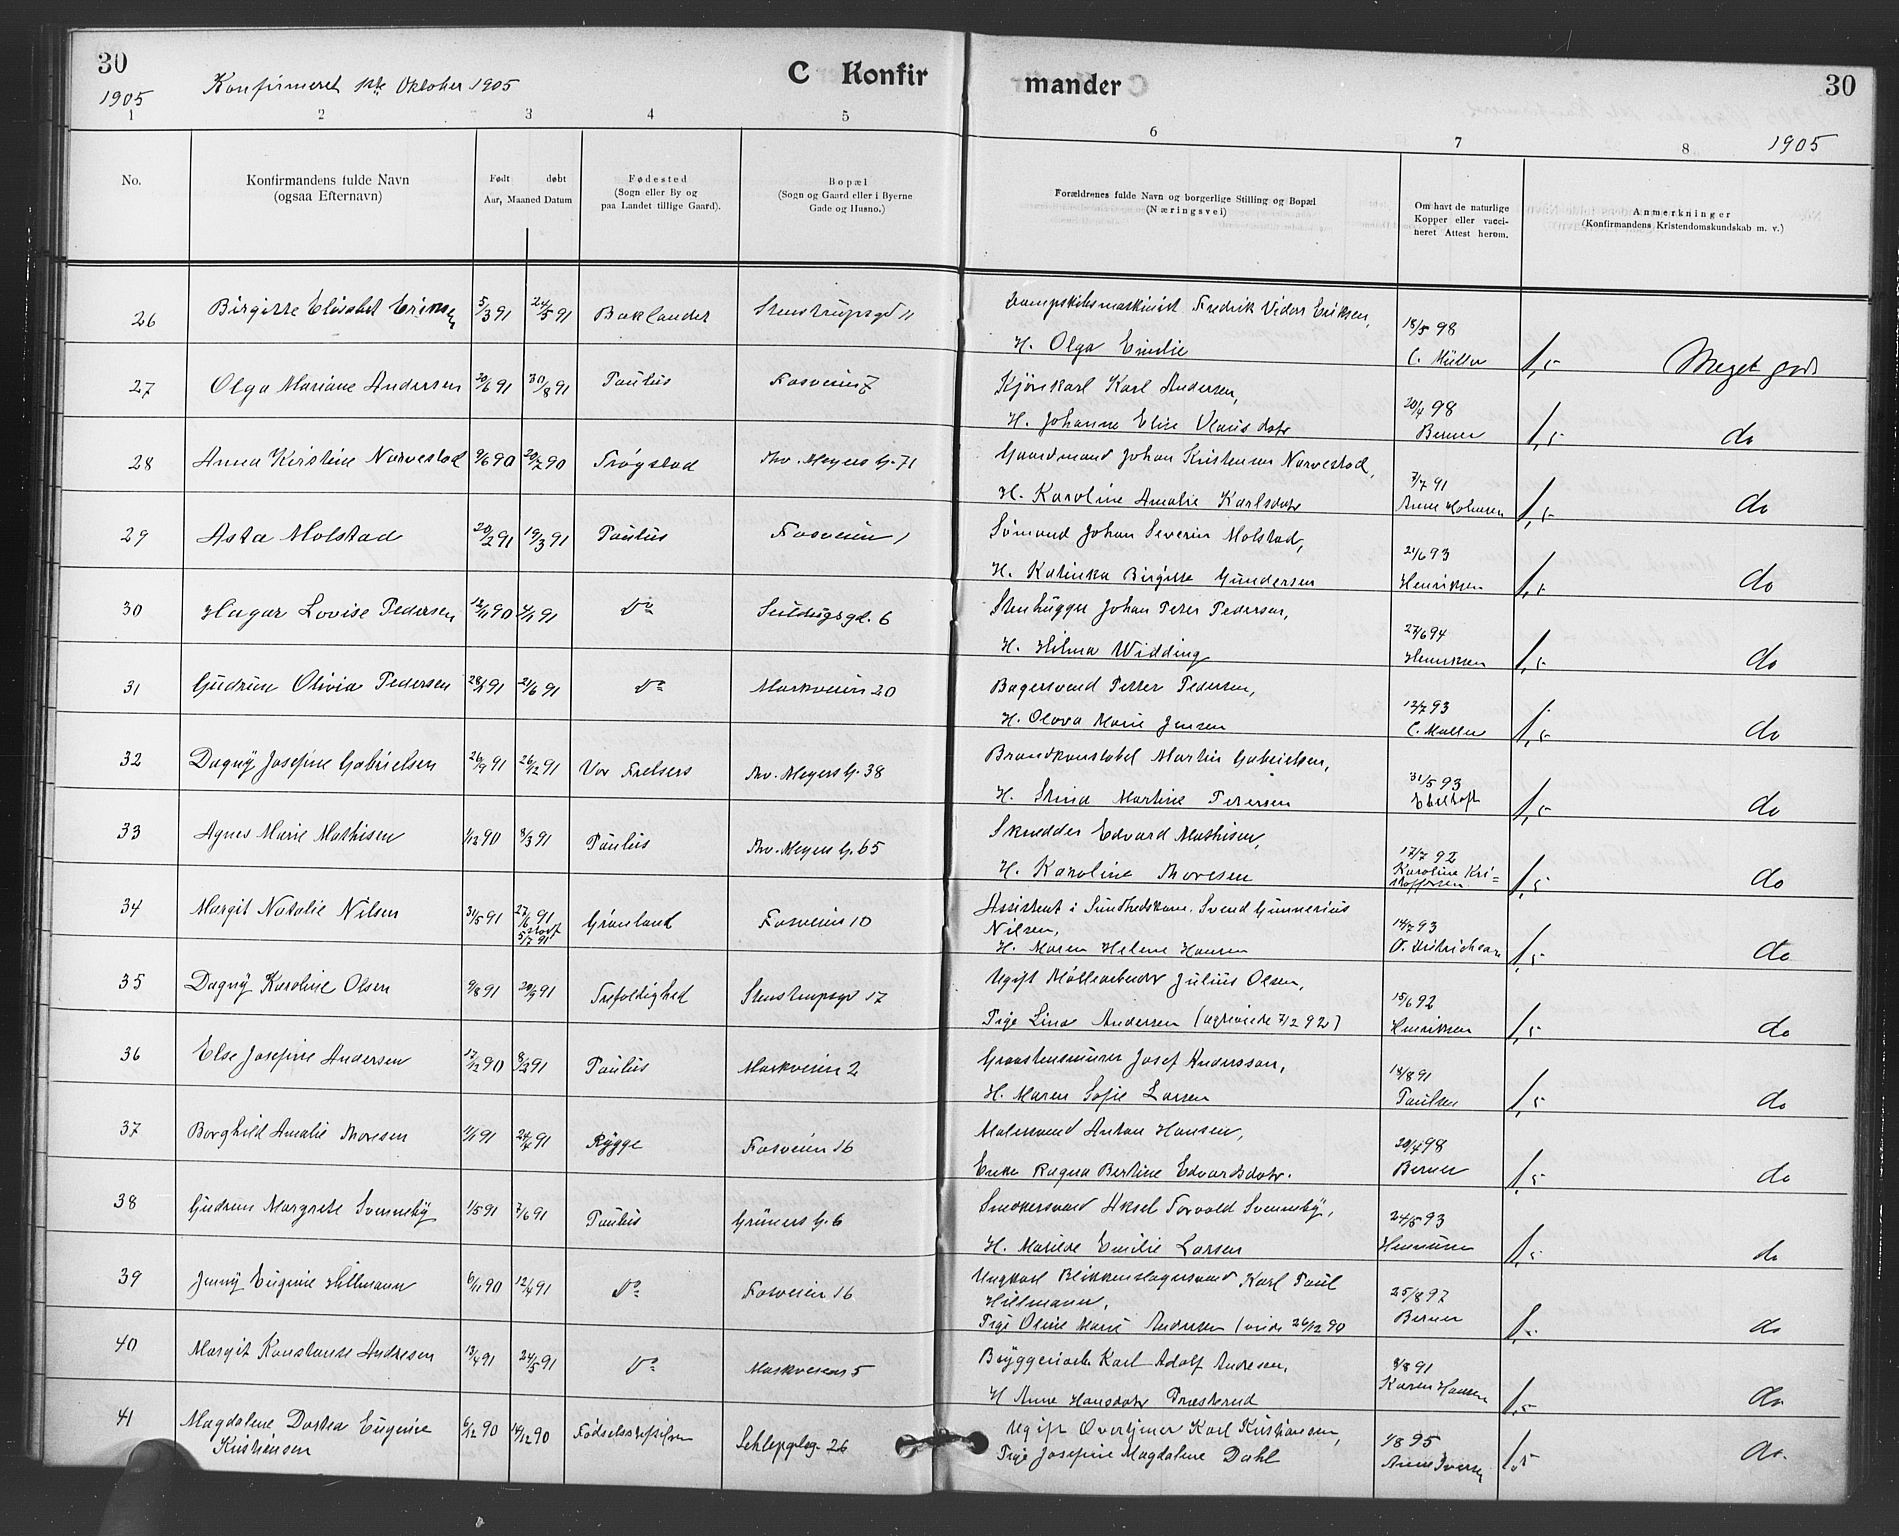 30
1905
Konfirmeret 1ste Oktober 1905
C Konfir
mander
30
1905
1 2 3 4 5 6 7 8
No.
Konfirmandens fulde Navn
(ogsaa Efternavn)
Født døbt
Aar, Maaned Datum
Fødested
(Sogn eller By og
paa Landet tillige Gaard).
Bopæl
(Sogn og Gaard eller i Byerne
Gade og Husno.)
Forældrenes fulde Navn og borgerlige Stilling og Bopæl
(Næringsvei)
Om havt de naturlige
Kopper eller vacci-
neret Attest herom.
Anmerkninger
(Konfirmandens Kristendomskundskab m. v.)
26 Birgitte Elisabet Eriksen 5/3 91 24/5 91 Baklandet Stenstrupsgd 11 Dampskibsmaskinist Fredrik Vidar Eriksen,
H. Olga Emilie 18/5 98 C. Müller 1,5 Meget god
27 Olga Mariane Andersen 20/6 91 30/8 91 Paulus Fosveien 7 Kjørekarl Karl Andersen,
H. Johanne Elise 20/4 98 Berner 1,5 do
28 Anna Kirstine Narvestad 9/6 90 20/7 90 Trøgstad Thv. Meyers G. 71 Gaardmand Johan Kristensen Narvestad,
H. Karoline Amalie Karlsdatr 7/7 91 Anne Holmsen 1,5 do
29 Asta Molstad 20/2 91 19/3 91 Paulus Fosveien 1 Sømand Johan Severin Molstad,
H. Katinka Birgitte Gundersen 21/6 93 Henriksen 1,5 do
30 Hagar Lovise Pedersen 12/11 90 1/1 91 Do 6 Stenhugger Johan Peter Pedersen,
H. Hilma Widding 27/6 94 Henriksen 1,5 do
31 Gudrun Olivia Pedersen 28/1 91 21/6 91 Do Markveien 20 Bagersvend Petter Pedersen,
H. Olava Marie Jensen 12/7 93 C. Müller 1,5 do
32 Dagny Josefine Gabrielsen 26/9 91 26/12 91 Vor Frelsers Thv. Meyers G. 38 Brandkonstabel Martin Gabrielsen,
H. Stina Martine Petersen 31/5 93 Ebeltoft 1,5 do
33 Agnes Marie Mathisen 1/12 90 8/3 91 Paulus Thv. Meyers G. 65 Skrædder Edvard Mathisen,
H. Karoline Thoresen 17/7 92 Karoline Kri=
stoffersen 1,5 do
34 Margit Natalie Nilsen 31/5 91 27/6 91
stadf
5/7 91 Grønland Fosveien 10 Assistent i Sundhedskom. Svend Gunnerius
Nilsen,
H. Maren Helene Hansen 14/7 93 O. Dietrichson 1,5 do
35 Dagny Karoline Olsen 9/8 91 20/9 91 Trefoldighed Stenstrupsgd 17 Ugift Møllearbeider Julius Olsen,
Pige Lina Andersen (ægteviede 7/2 92) 15/6 92 Henriksen 1,5 do
36 Else Josefine Andersen 17/12 90 8/2 91 Paulus Markveien 2 Graastensmurer Josef Andersson,
H. Maren Sofie Larsen 18/8 91 Paulsen 1,5 do
37 Borghild Amalie Thoresen 1/1 91 24/4 91 Rygge Fosveien 16 Malersvend Anton Hansen,
Enke Ragna Bertine Edvardsdatr. 20/4 98 Berner 1,5 do
38 Gudrun Margrete Svenneby 1/5 91 7/6 91 Paulus Grüners G. 6 Snedkersvend Aksel Torvald Svenneby,
H. Matilde Emilie Larsen 24/5 93 1,5 do
39 Jenny Eugenie Hillmann 6/11 90 12/4 91 Do Fosveien 16 Ungkarl Blikkenslagersvend Karl Paul
Hillmann,
Pige Oline Marie Andersen (viede 26/12 90 25/8 97 Berner 1,5 do
40 Margit Konstanse Andresen 13/4 91 24/5 91 Do Markveien 5 Bryggeriarb Karl Adolf Andresen,
H Anne Hansdatr Præsterud 8/8 91 Karen Hansen 1,5 do
41 Magdalene Dortea Eugenie
Kristiansen 6/12 90 14/12 90 Fødselsstiftelsen Schleppegrelsg. 26 Ugift Karl Kristiansen,
Pige Josefine Magdalene Dahl 1/8 95 Anne Iversen 1,5 do.